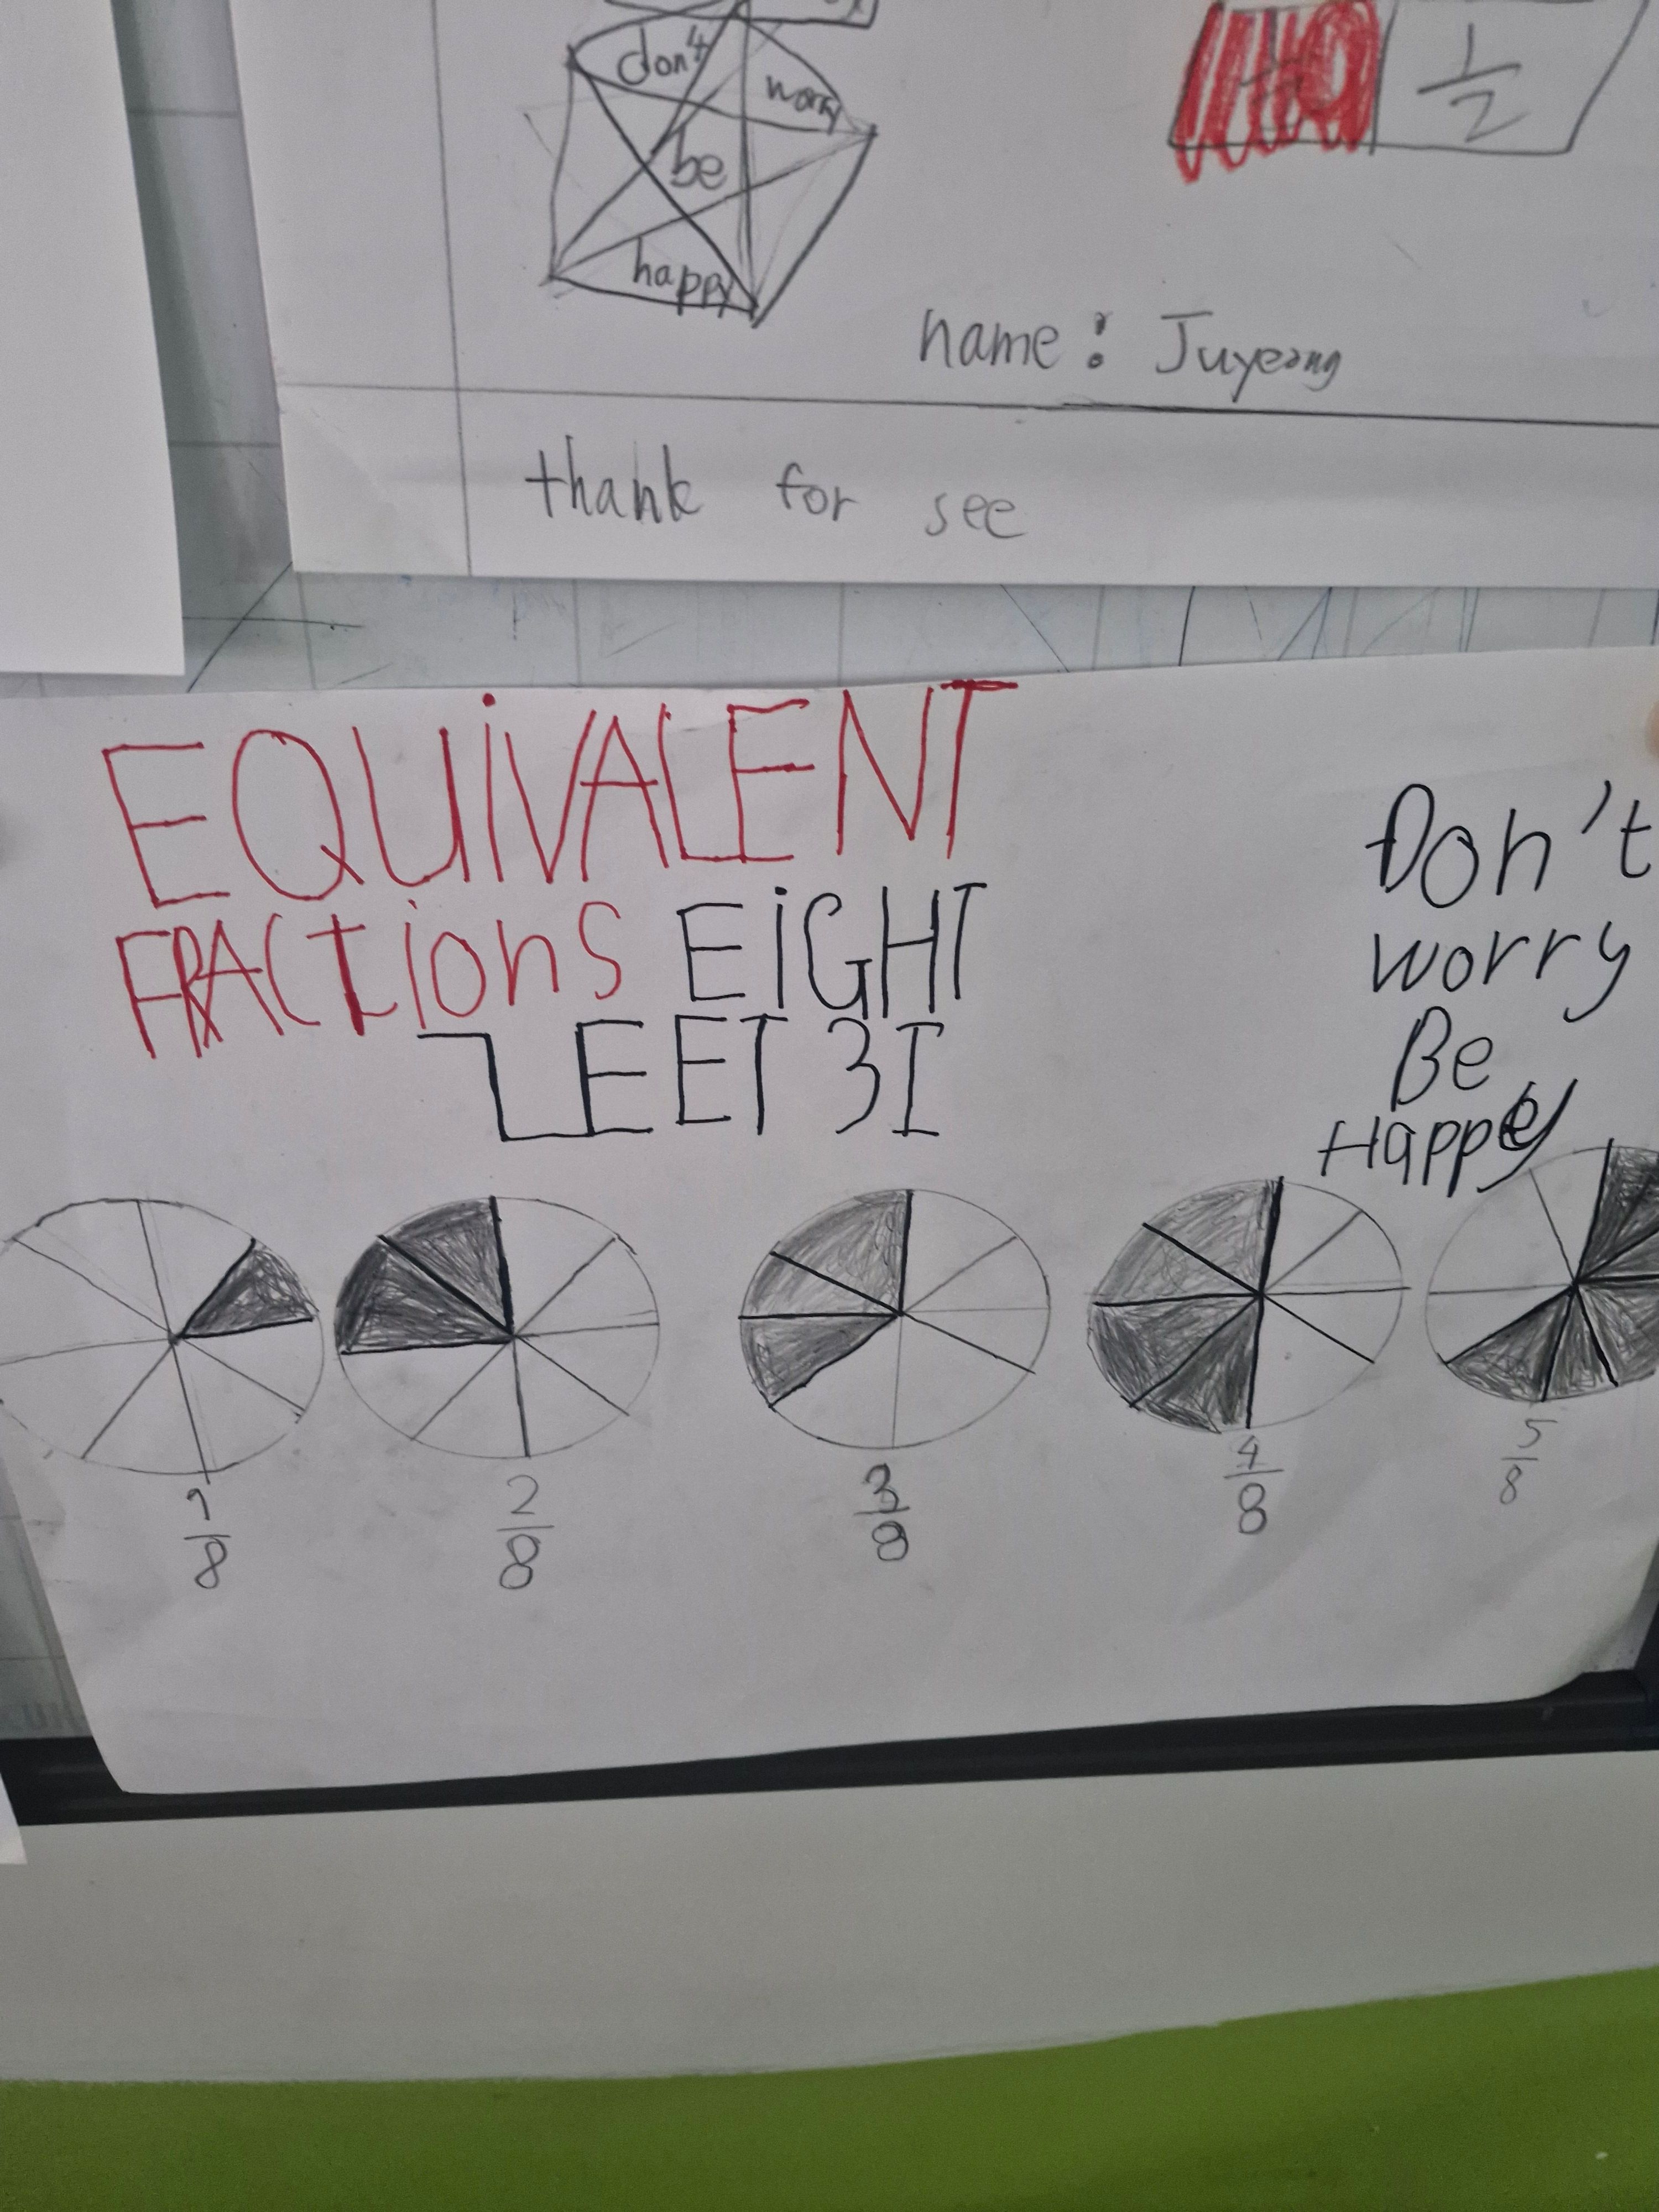 don't
worry
be
happy
1/2
name: Juyeong
thank for see
EQUIVALENT
FRACTIONS EIGHT
LEET 3I
Don't
worry
Be
Happy
1/8 2/8 3/8 4/8 5/8